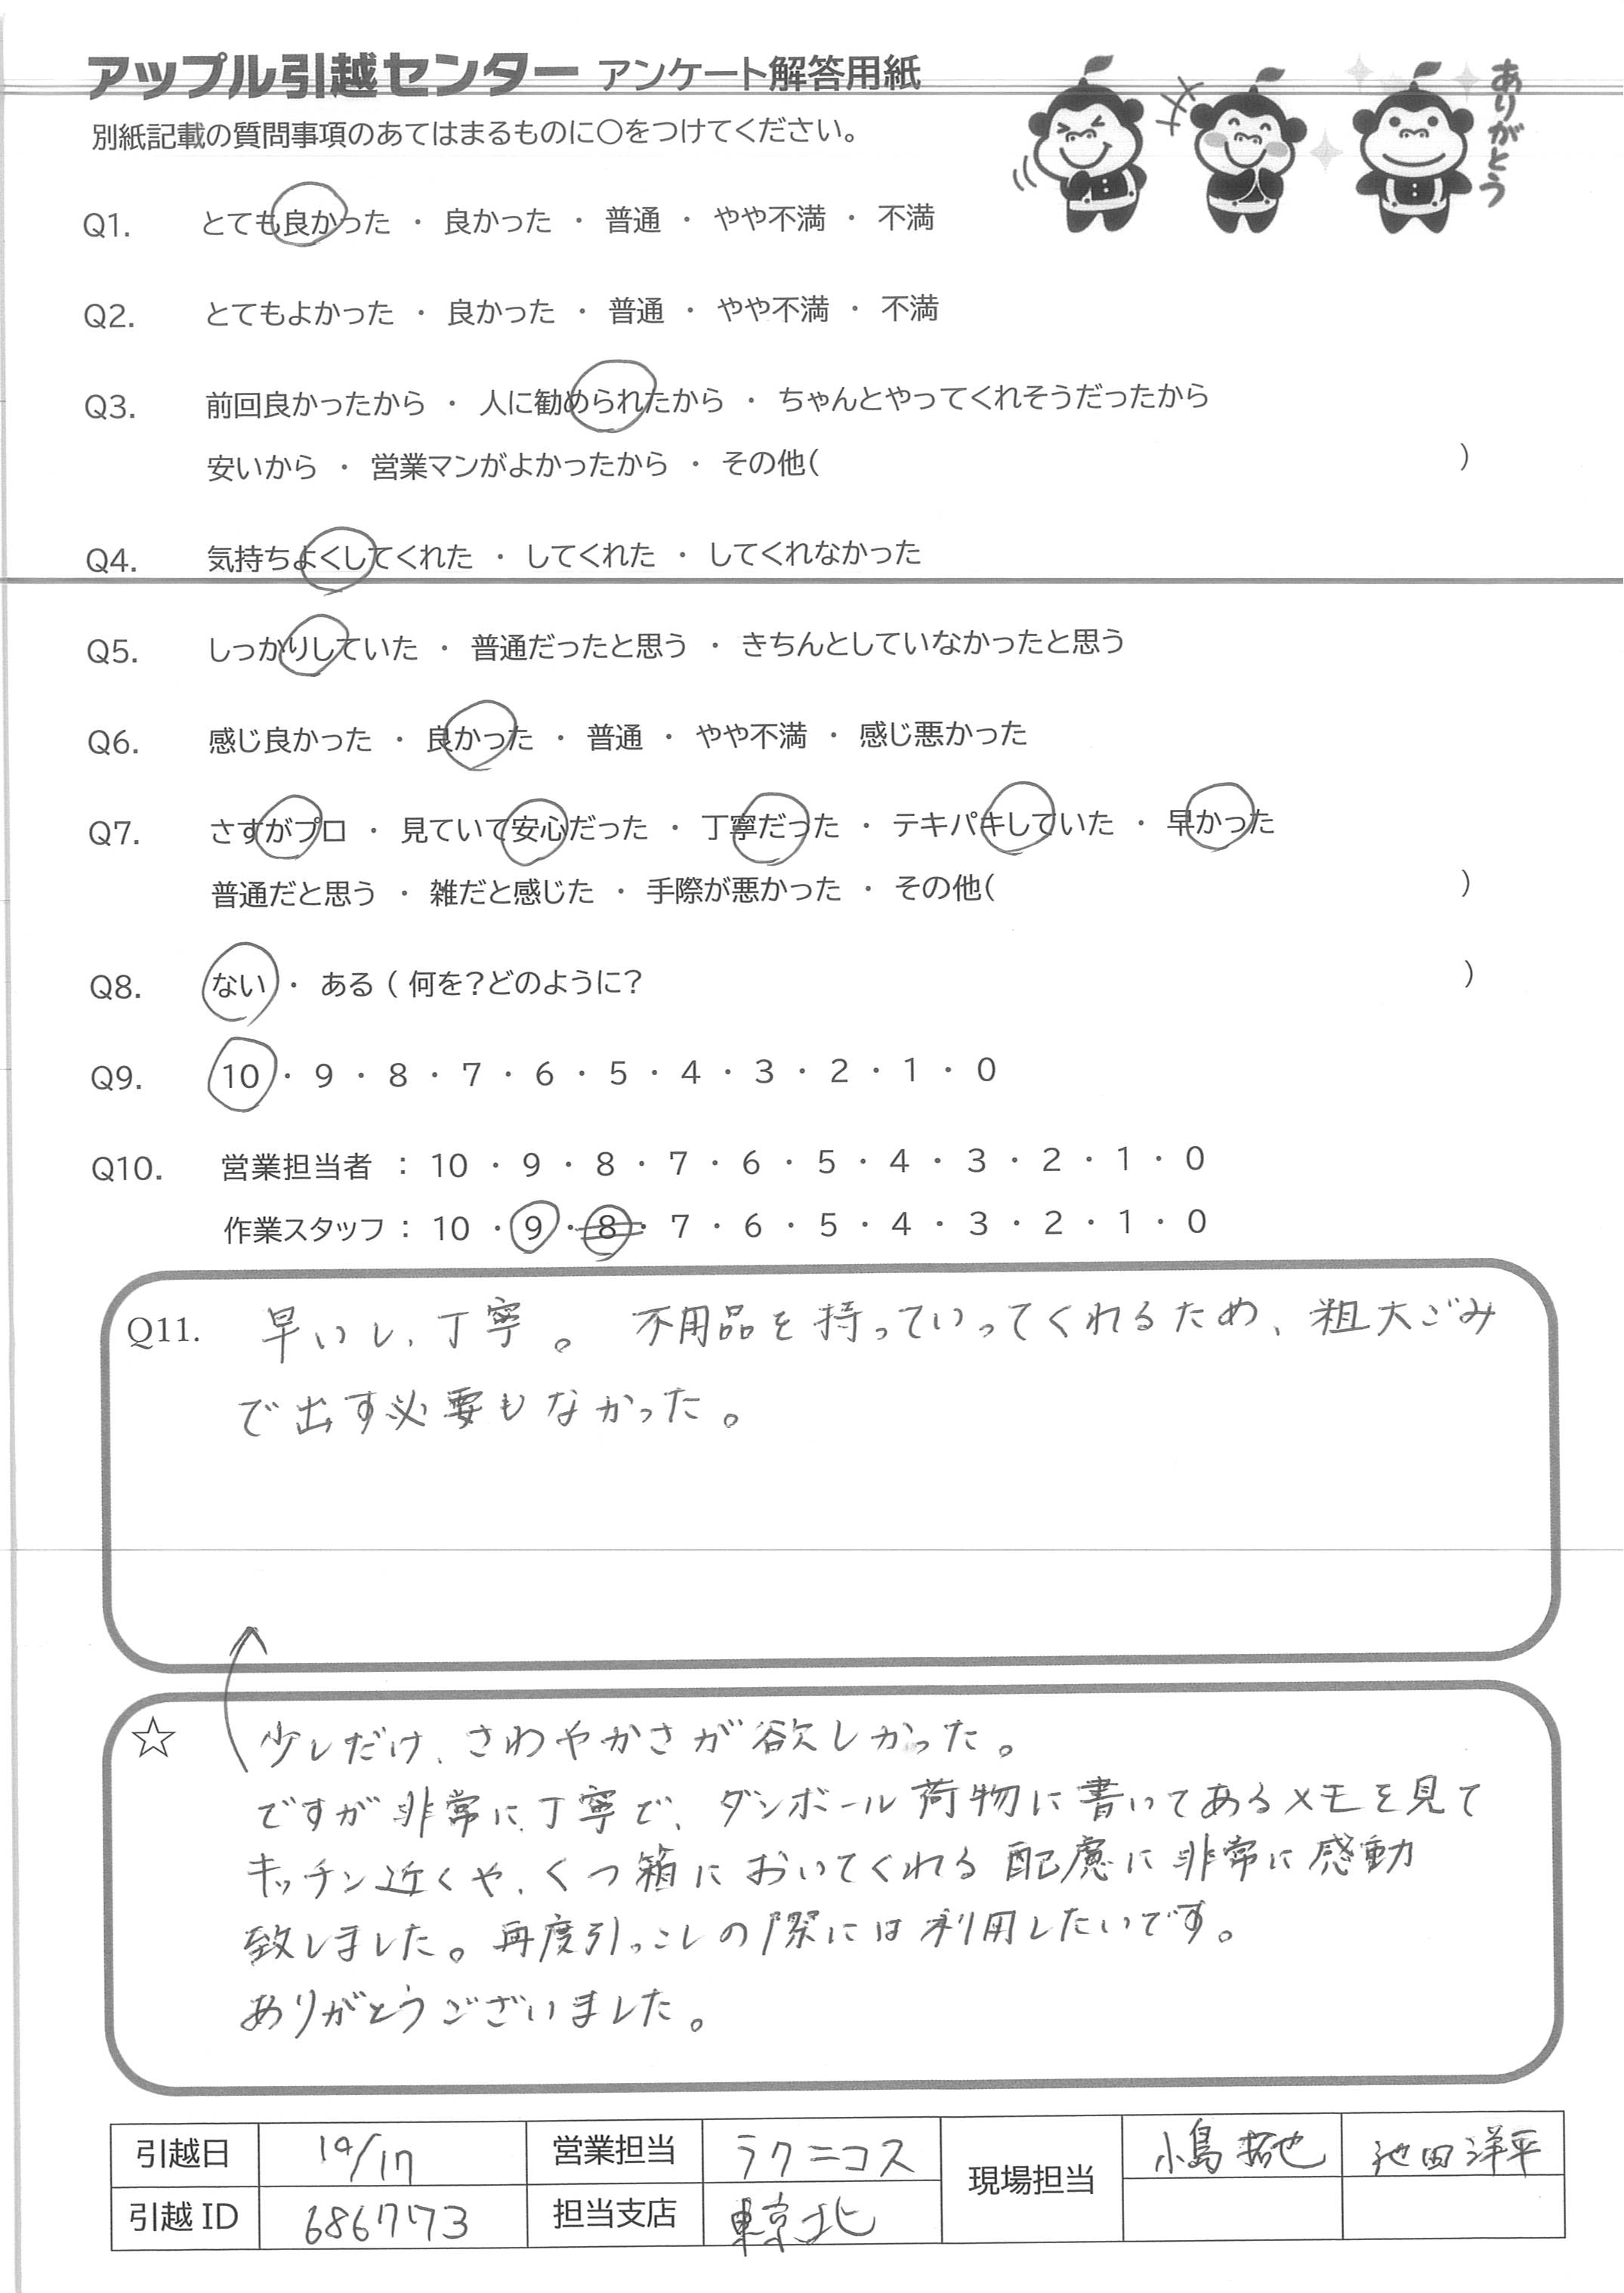 アップル引越センター アンケート解答用紙
別紙記載の質問事項のあてはまるものに○をつけてください。
ありがとう
Q1. とても良かった ・ 良かった ・ 普通 ・ やや不満 ・ 不満
Q2. とてもよかった ・ 良かった ・ 普通 ・ やや不満 ・ 不満
Q3. 前回良かったから ・ 人に勧められたから ・ ちゃんとやってくれそうだったから
安いから ・ 営業マンがよかったから ・ その他( )
Q4. 気持ちよくしてくれた ・ してくれた ・ してくれなかった
Q5. しっかりしていた ・ 普通だったと思う ・ きちんとしていなかったと思う
Q6. 感じ良かった ・ 良かった ・ 普通 ・ やや不満 ・ 感じ悪かった
Q7. さすがプロ ・ 見ていて安心だった ・ 丁寧だった ・ テキパキしていた ・ 早かった
普通だと思う ・ 雑だと感じた ・ 手際が悪かった ・ その他( )
Q8. ない ・ ある ( 何を?どのように? )
Q9. 10 ・ 9 ・ 8 ・ 7 ・ 6 ・ 5 ・ 4 ・ 3 ・ 2 ・ 1 ・ 0
Q10. 営業担当者 : 10 ・ 9 ・ 8 ・ 7 ・ 6 ・ 5 ・ 4 ・ 3 ・ 2 ・ 1 ・ 0
作業スタッフ : 10 ・ 9 ・ 8 ・ 7 ・ 6 ・ 5 ・ 4 ・ 3 ・ 2 ・ 1 ・ 0
Q11. 早いし、丁寧。 不用品を持っていってくれるため、粗大ごみ
で出す必要もなかった。
☆ 少しだけ、さわやかさが欲しかった。
ですが非常に丁寧で、ダンボール荷物に書いてあるメモを見て
キッチン近くや、くつ箱においてくれる配慮に非常に感動
致しました。再度引っこしの際には利用したいです。
ありがとうございました。
引越日 10/17 営業担当 ラクニコス 現場担当 小島 拓也 池田 洋平
引越 ID 686773 担当支店 東京北